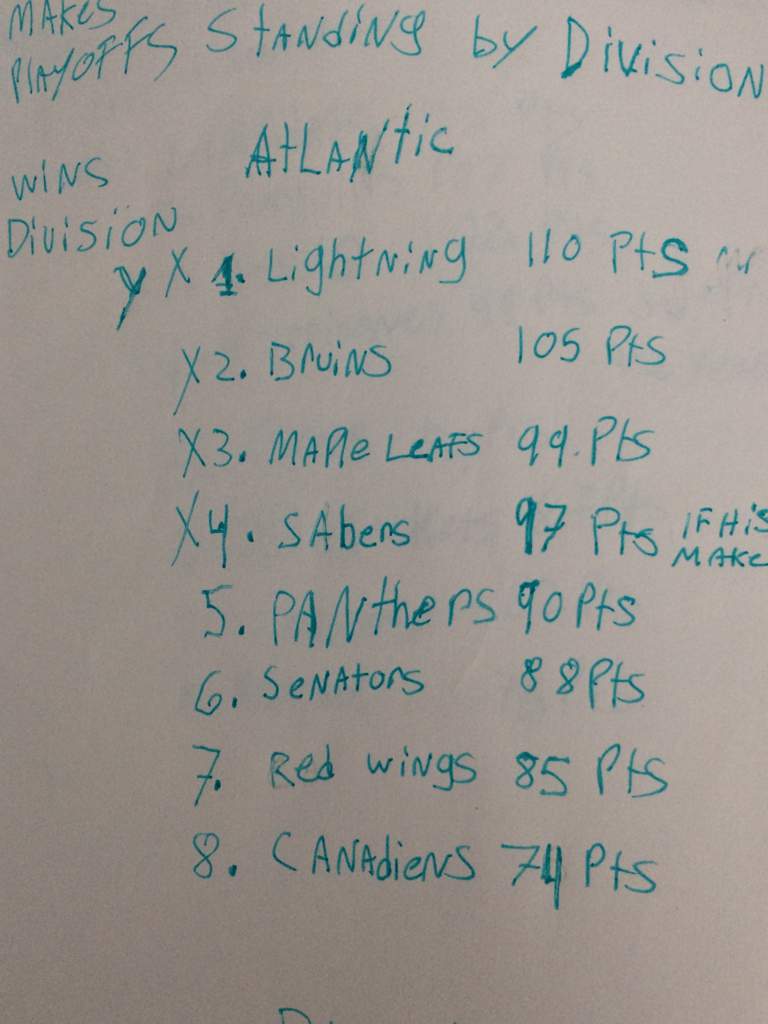 MAKES
PLAYOFFS Standing by Division
Atlantic
WINS
Division
y X 1. Lightning 110 Pts
X2. Bruins 105 Pts
X3. MAPle LeAFS 99. Pts
X4. SAbers 97 Pts IF HiS
MAKE
5. PANthers 90 Pts
6. SeNAtors 88 Pts
7. Red wings 85 Pts
8. CANAdiens 74 Pts